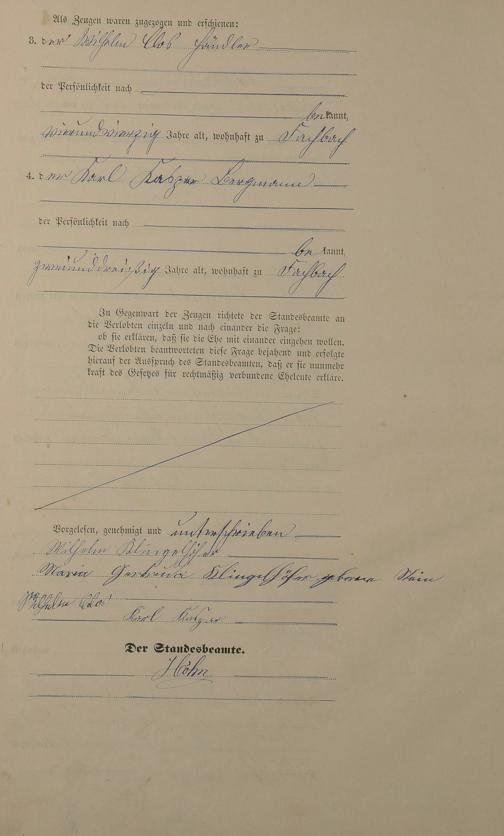 Als Zeugen waren zugezogen und erschienen:
3. der Wilhelm Clos Händler
der Persönlichkeit nach
bekannt,
vierundvierzig Jahre alt, wohnhaft zu Fachbach
4. der Karl Kasper Bergmann
der Persönlichkeit nach
bekannt,
zweiunddreißig Jahre alt, wohnhaft zu Fachbach
In Gegenwart der Zeugen richtete der Standesbeamte an
die Verlobten einzeln und nach einander die Frage:
ob sie erklären, daß sie die Ehe mit einander eingehen wollen.
Die Verlobten beantworteten diese Frage bejahend und erfolgte
hierauf der Ausspruch des Standesbeamten, daß er sie nunmehr
kraft des Gesetzes für rechtmäßig verbundene Eheleute erkläre.
Vorgelesen, genehmigt und unterschrieben
Wilhelm Klingelhöfer
Maria Gertruda Klingelhöfer geborene Stein
Wilhelm Clos
Karl Kasper
Der Standesbeamte.
Höhn